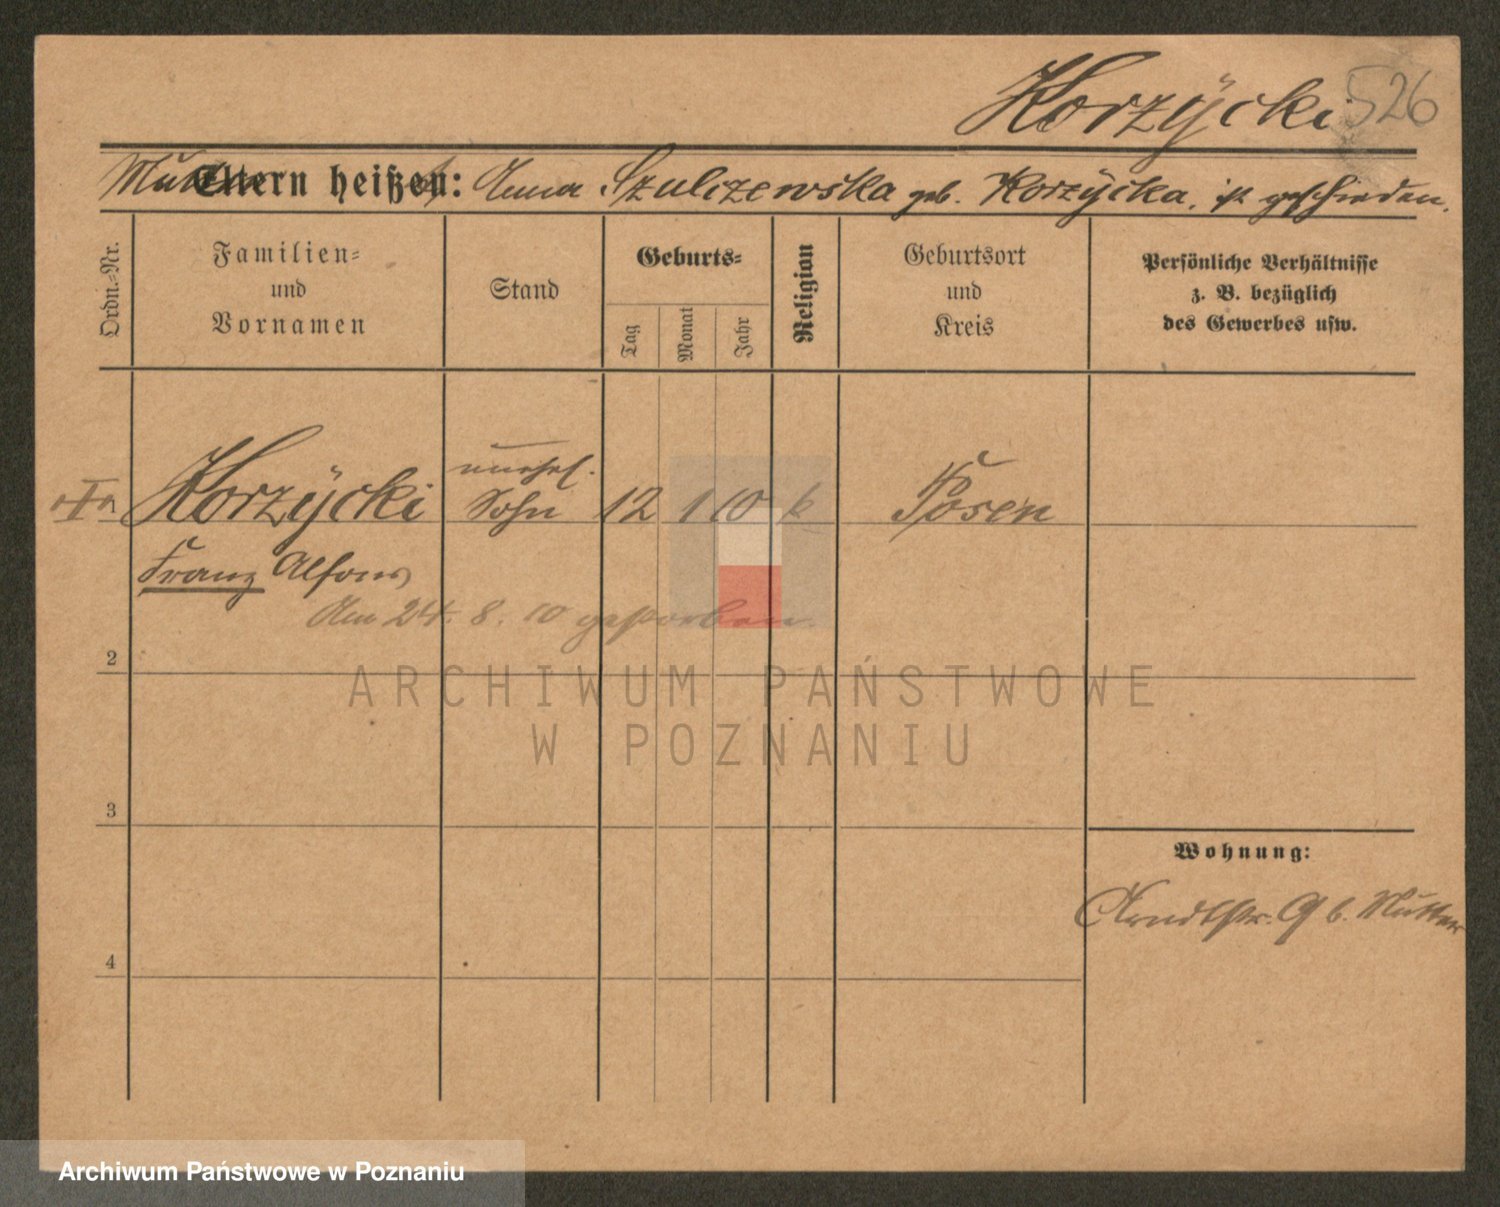 Korzÿcki 526
Mutter Eltern heißt en: Anna Szulczewska geb. Korzÿcka. ist geschieden.
Ordn.-Nr.
Familien- und Vornamen
Stand
Geburts-
Tag
Monat
Jahr
Religion
Geburtsort und Kreis
Persönliche Verhältnisse
z. B. bezüglich
des Gewerbes usw.
unehel.
Korzÿcki Sohn 12 1 10 k Posen
Franz Alfons
Am 24. 8. 10 gestorben.
2
3
4
Wohnung:
Arndtstr. 9 b. Mutter
ARCHIWUM PAŃSTWOWE
W POZNANIU
Archiwum Państwowe w Poznaniu